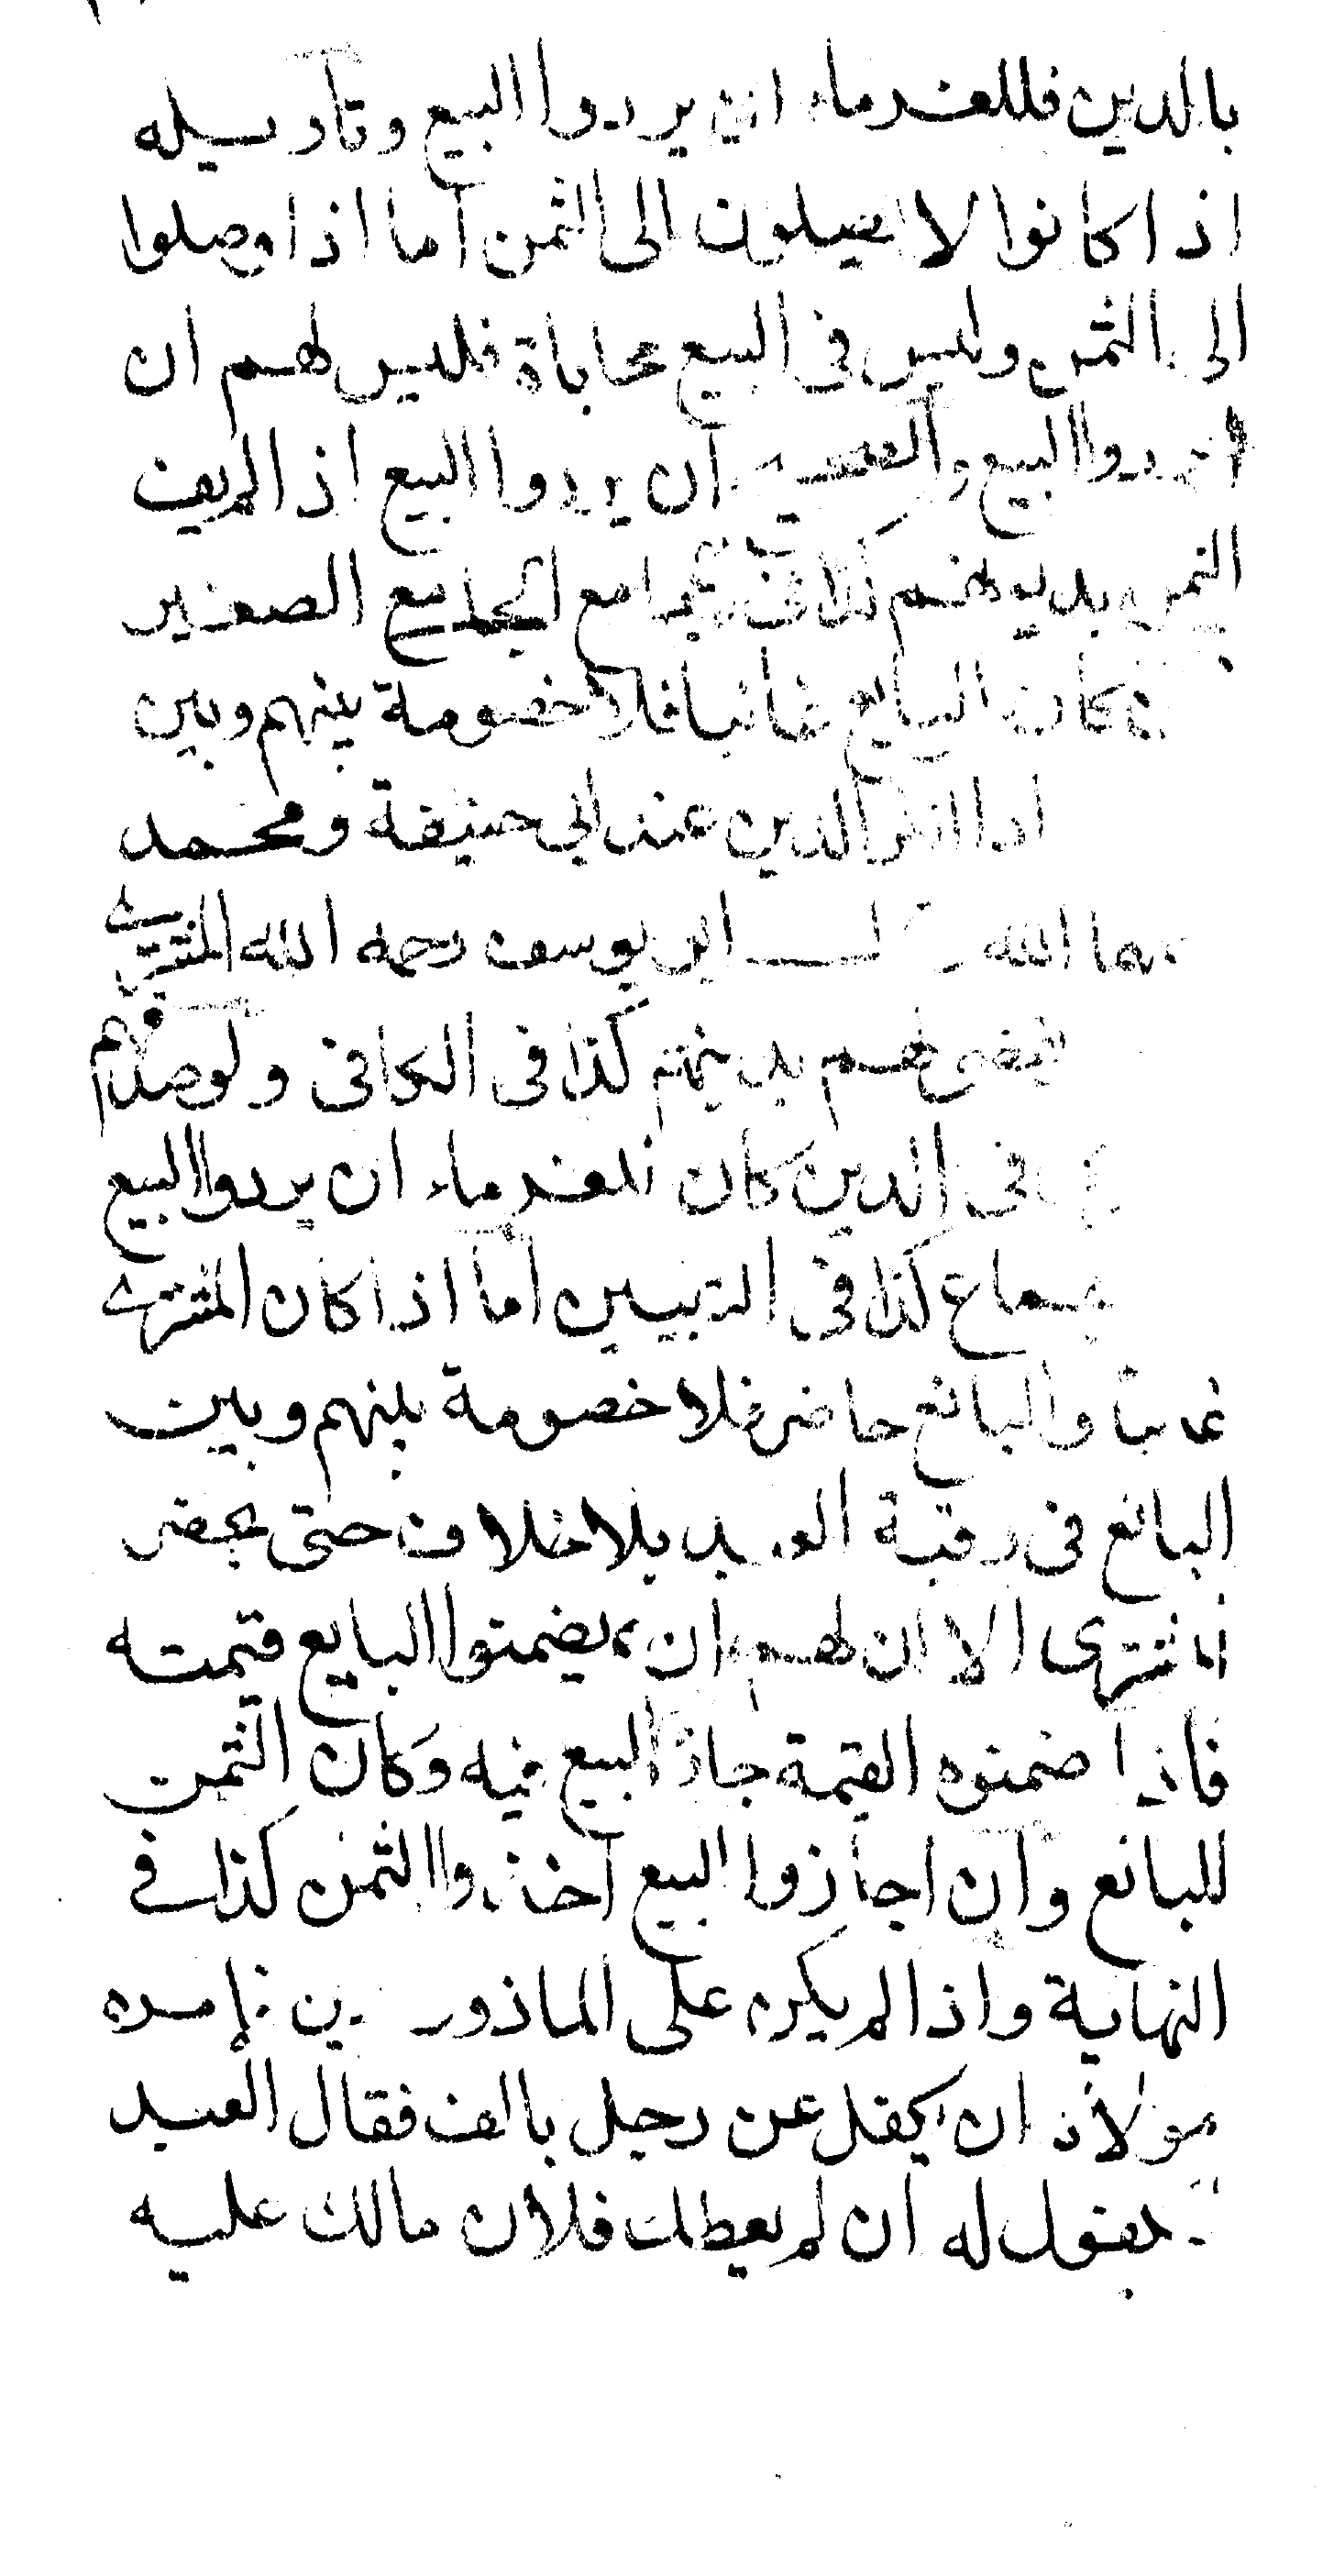 بالدين فللغرماء ان يردوا البيع وتأويله
اذا كانوا لا يصلون الى الثمن اما اذا وصلوا
الى الثمن وليس فى البيع محاباة فليس لهم ان
يردوا البيع ان يردوا البيع اذا لم يف
الثمن بديونهم كذا فى جامع الجامع الصغير
كان البايع غائبا فلا خصومة بينهم وبين
اذا انكر الدين عند ابى حنيفة ومحمد
الله ابو يوسف رحمه الله المشترى
لهم بدينهم كذا فى الكافى ولو صدقهم
فى الدين كان للغرماء ان يردوا البيع
كذا فى التبيين اما اذا كان المشترى
غائبا والبائع حاضر فلا خصومة بينهم وبين
البائع فى رقبة العبد بلا خلاف حتى يحضر
المشترى الا ان لهم ان يضمنوا البايع قيمته
فاذا ضمنوه القيمة جاز البيع فيه وكان الثمن
للبائع وان اجازوا البيع اخذوا الثمن كذا فى
النهاية واذا لم يكن على الماذون دين فامره
مولاه ان يكفل عن رجل بالف فقال العبد
للمكفول له ان لم يعطك فلان مالك عليه